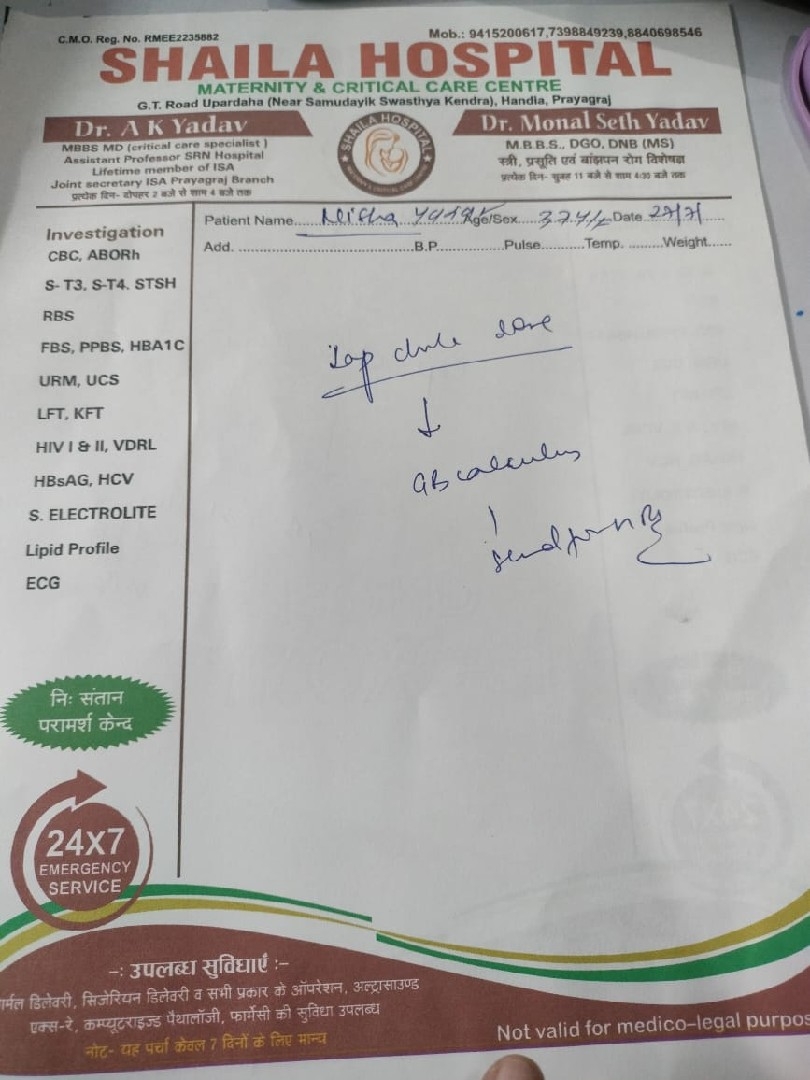 C.M.O. Reg. No. RMEE2235882
Mob.: 9415200617,7398849239,8840698546
SHAILA HOSPITAL
MATERNITY & CRITICAL CARE CENTRE
G.T. Road Upardaha (Near Samudayik Swasthya Kendra), Handia, Prayagraj
Dr. A K Yadav
MBBS MD (critical care specialist)
Assistant Professor SRN Hospital
Lifetime member of ISA
Joint secretary ISA Prayagraj Branch
प्रत्येक दिन- दोपहर 2 बजे से साम 4 बजे तक
SHAILA HOSPITAL
MATERNITY & CRITICAL CARE CENTRE
Dr. Monal Seth Yadav
M.B.B.S., DGO, DNB (MS)
स्त्री, प्रसूति एवं बांझपन रोग विशेषज्ञ
प्रत्येक दिन- सुबह 11 बजे से साम 4:30 बजे तक
Patient Name Nisha Age/Sex Date
Add. B.P. Pulse Temp. Weight
Investigation
CBC, ABORh
S- T3, S-T4, STSH
RBS
FBS, PPBS, HBA1C
URM, UCS
LFT, KFT
HIV I & II, VDRL
HBsAG, HCV
S. ELECTROLITE
Lipid Profile
ECG
Lap chole done
GB calculus
send for
निः संतान
परामर्श केन्द
24X7
EMERGENCY
SERVICE
-: उपलब्ध सुविधाएं :-
र्मल डिलेवरी, सिजेरियन डिलेवरी व सभी प्रकार के ऑपरेशन, अल्ट्रासाउण्ड
एक्स-रे, कम्प्यूटराइज्ड पैथालॉजी, फार्मेसी की सुविधा उपलब्ध
नोट- यह पर्चा केवल 7 दिनों के लिए मान्य
Not valid for medico-legal purpos